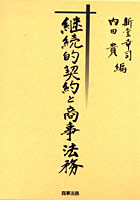 継続的契約と商事法務
新堂幸司
内田貴 編
商事法務